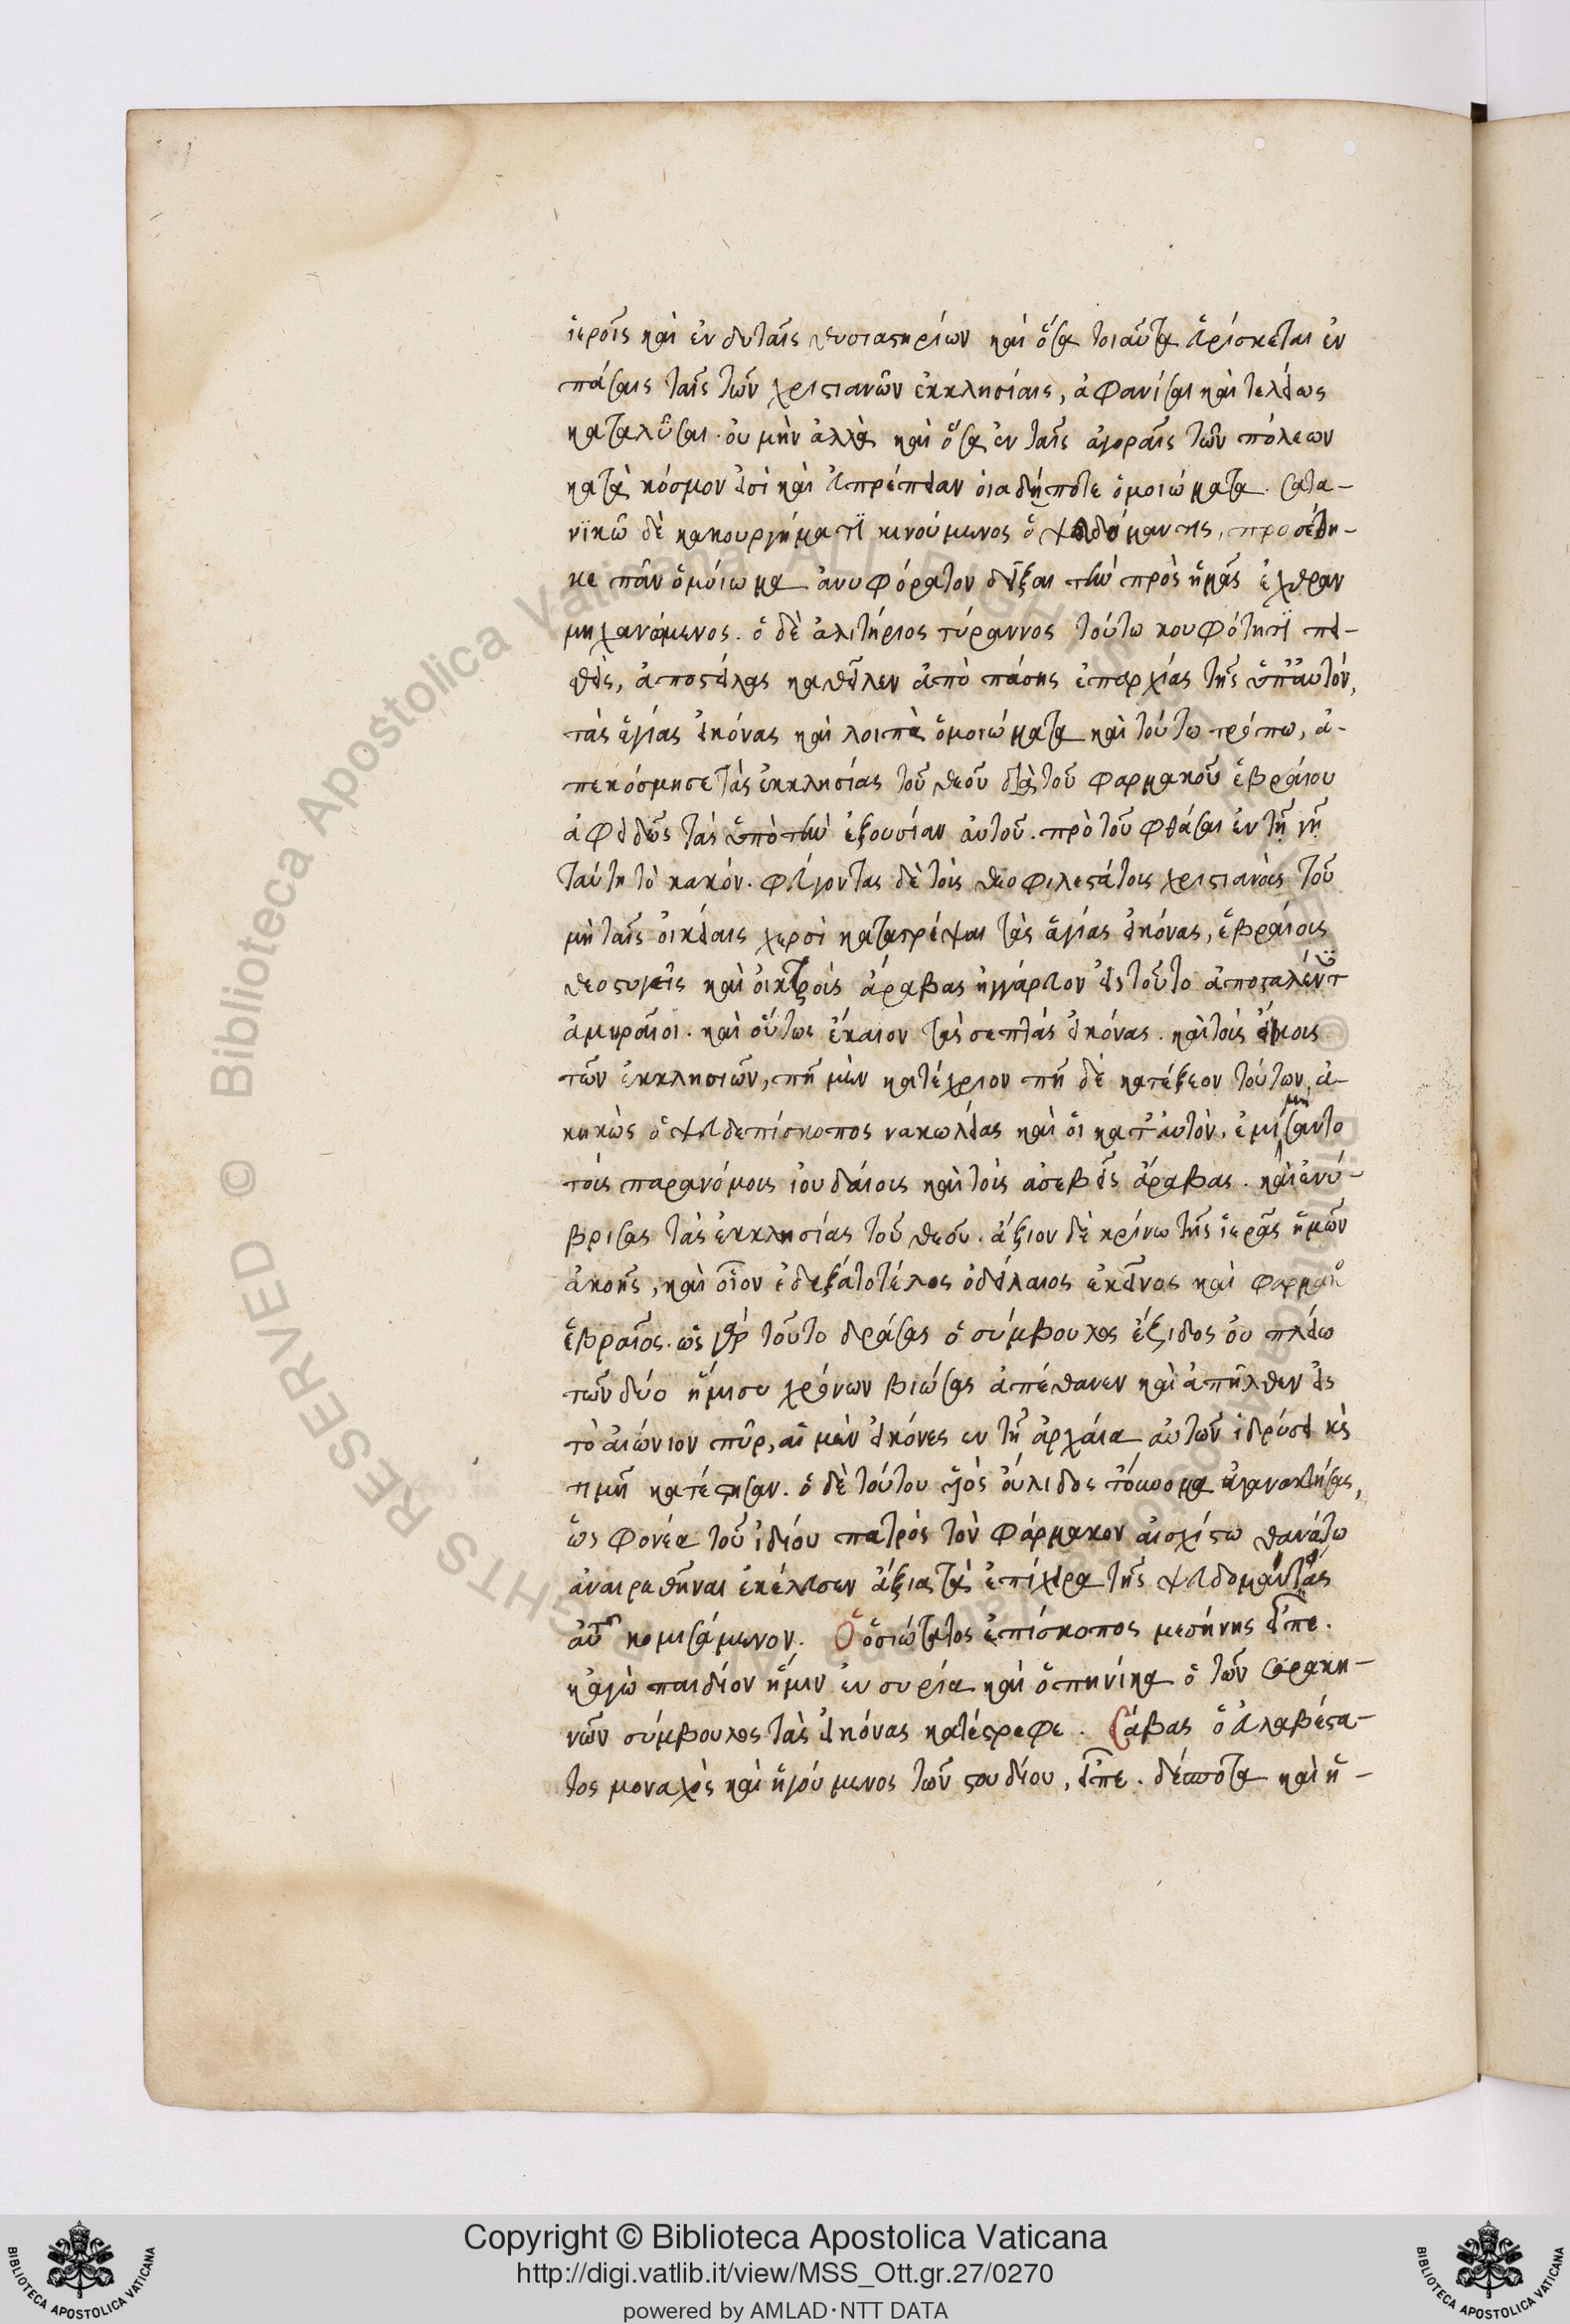 ἱεροῖς καὶ ἐνδυταῖς θυσιαστηρίων καὶ ὅσα τοιαῦτα εὑρίσκεται ἐν
πάσαις ταῖς τῶν χριστιανῶν ἐκκλησίαις, ἀφανίσαι καὶ τελείως
καταλῦσαι. οὐ μὴν ἀλλὰ καὶ ὅσα ἐν ταῖς ἀγοραῖς τῶν πόλεων
κατὰ κόσμον εἰσὶ καὶ εὐπρέπειαν οἱαδήποτε ὁμοιώματα. Σατα-
νϊκῶ δὲ κακουργήματϊ κινούμενος ὁ ψευδόμαντις, προσέθη-
κε πᾶν ὁμοίωμα ἀνυφόρατον δεῖξαι τὴν πρὸς ἡμᾶς ἔχθραν
μηχανόμενος. ὁ δὲ ἀλιτήριος τύραννος τούτω κουφότητϊ πει-
θεὶς, ἀποστείλας καθεῖλεν ἀπὸ πάσης ἐπαρχίας τῆς ὑπ' αυτόν,
τὰς ἁγίας εἰκόνας καὶ λοιπὰ ὁμοιώματα καὶ τούτω τρόπω, ἀ-
πεκόσμησε τὰς ἐκκλησίας τοῦ θεοῦ διὰ τοῦ φαρμακοῦ ἑβραίου
ἀφειδῶς τὰς ὑπὸ τὴν ἐξουσίαν αὐτοῦ. πρὸ τοῦ φθάσαι ἐν τῆ γῆ
ταύτη τὸ κακόν. φεύγοντας δὲ τοὺς θεοφιλεστάτους χριστιανοὺς τοῦ
μὴ ταῖς οἰκείαις χερσὶ καταστρέψαι τὰς ἁγίας εἰκόνας, ἑβραίους
θεοστυγεῖς καὶ οἰκτροὺς ἄραβας ἠγγάρευον εἰς τοῦτο ἀποσταλέντες
ἀμυραῖοι. καὶ οὕτως ἔκαιον τὰς σεπτὰς εἰκόνας. καὶ τοὺς οἴκους
τῶν ἐκκλησιῶν, πῆ μὲν κατέχριον πῆ δὲ κατέξεον τούτων ἀ-
κηκὼς ὁ ψευδεπίσκοπος νακωλείας καὶ οἱ κατ' αυτὸν, ἐμιμήσαντο
τοὺς παρανόμους ἰουδαίους καὶ τοὺς ασεβεῖς ἄραβας. καὶ ἐνύ-
βρισας τὰς ἐκκλησίας τοῦ θεοῦ. ἄξιον δὲ κρίνω τῆς ἱερᾶς ἡμῶν
ἀκοῆς, καὶ οἷον ἐδέξατο τέλος ὁ δείλαιος ἐκεῖνος καὶ φαρμακὸς
ἑβραῖος. ὡς γὰρ τοῦτο δράσας ὁ σύμβουλος ἔζιδος οὐ πλείω
τῶν δύο ἥμισυ χρόνων βιώσας ἀπέθανεν καὶ ἀπῆλθεν εἰς
τὸ αἰώνιον πῦρ, αἱ μὲν εἰκόνες εν τῆ ἀρχαία αὐτῶν ἱδρύσει κὲ
τιμῆ κατέστησαν. ὁ δὲ τούτου ὑιὸς οὔλιδος τόυνομα ἀγανακτήσας,
ὡς φονέα τοῦ ἰδίου πατρὸς τὸν φάρμακον αἰσχίστω θανάτω
ἀναιρεθῆναι ἐκέλευσεν ἄξια τὰ ἐπίχειρα τῆς ψευδομαντείας
αὐτοῦ κομισάμενον. Ὁ ὁσιώτατος ἐπίσκοπος μεσήνης εἶπε.
καγὼ παιδίον ἤμην ἐν συρία καὶ ὁπηνίκα ὁ τῶν Σαρακη-
νῶν σύμβουλος τὰς εἰκόνας κατέστρεφε. Σάβας ὁ εὐλαβέστα-
τος μοναχὸς καὶ ἡγούμενος τῶν στουδίου, εἶπε. δέσποτα καὶ ἡ-
Copyright © Biblioteca Apostolica Vaticana
http://digi.vatlib.it/view/MSS_Ott.gr.27/0270
powered by AMLAD·NTT DATA